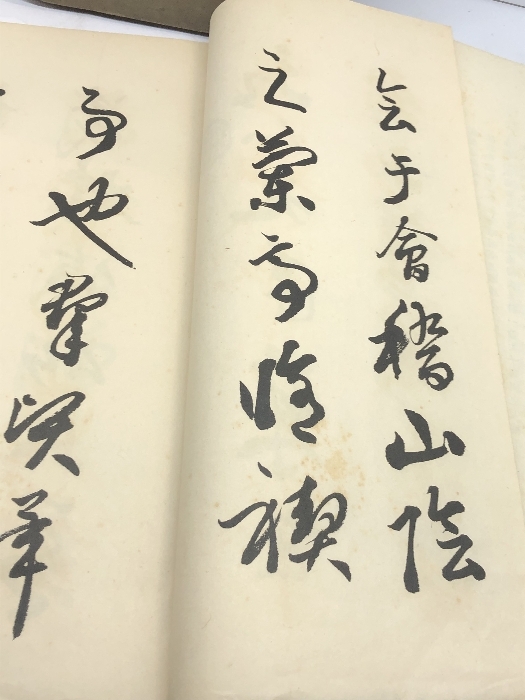 会于會稽山陰
之蘭亭脩禊
事也群賢畢